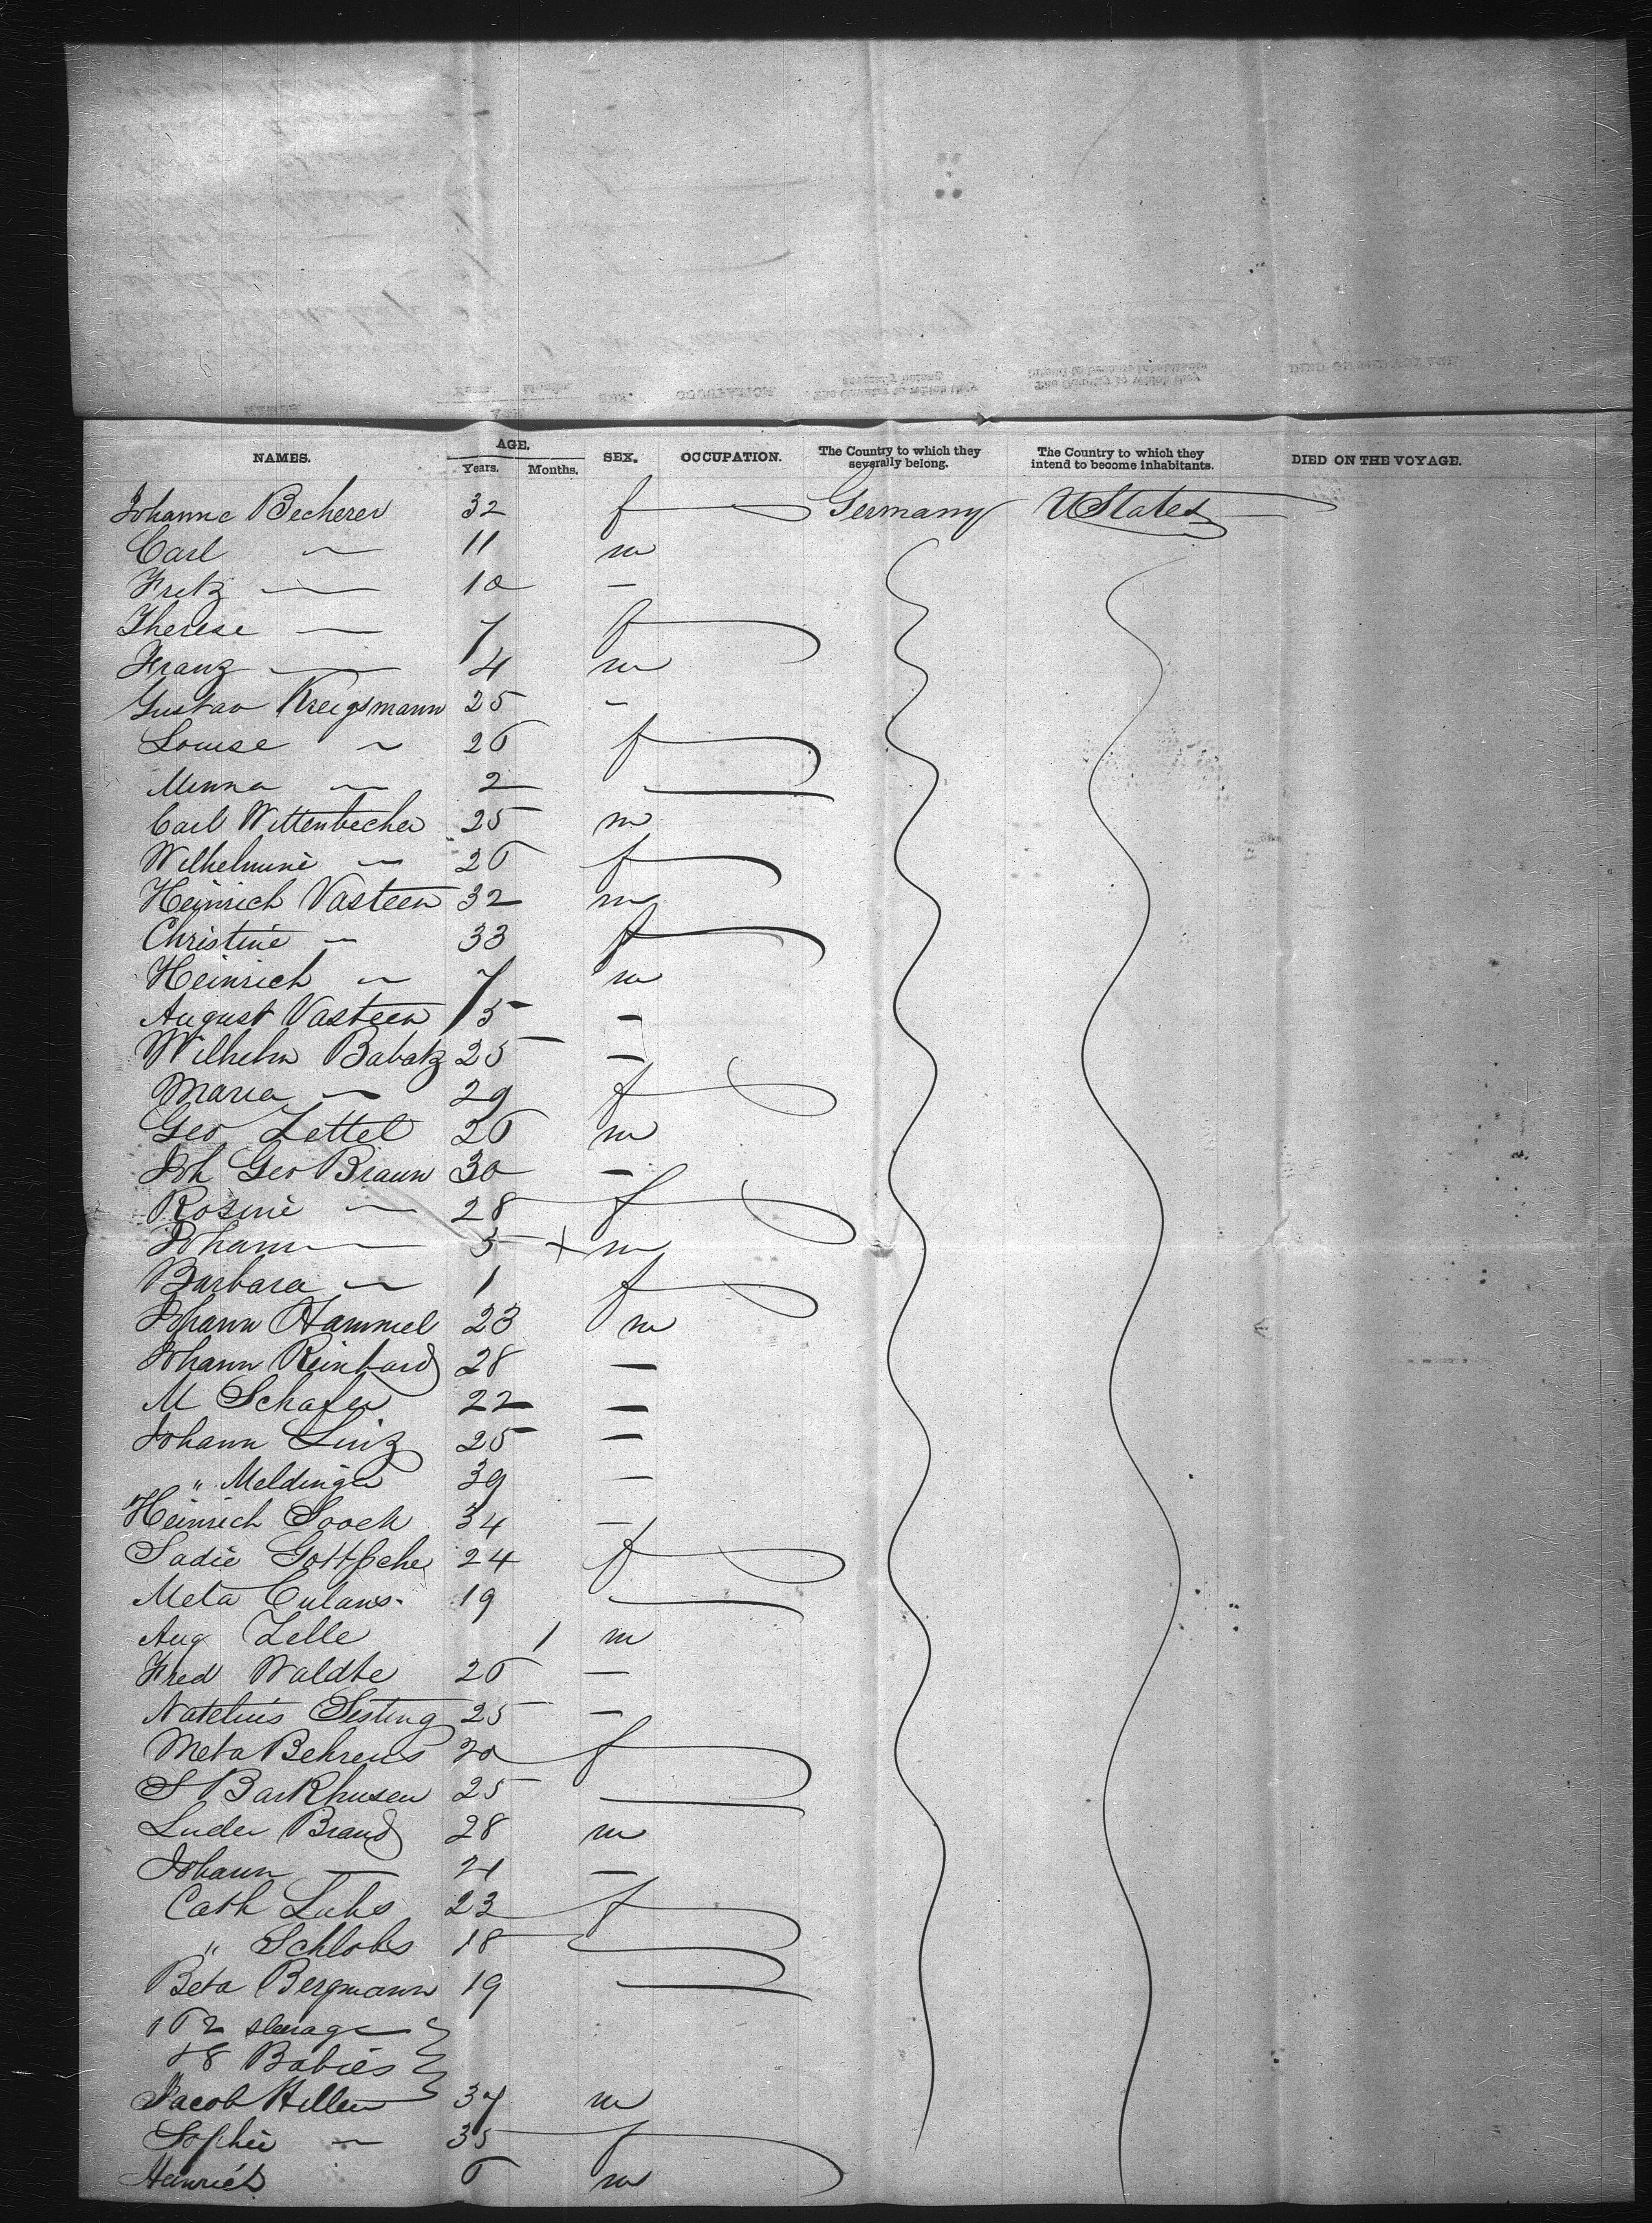 NAMES. AGE. Years. Months. SEX. OCCUPATION. The Country to which they severally belong. The Country to which they intend to become inhabitants. DIED ON THE VOYAGE.
Johanne Becherer 32 f Germany UStates
Carl — 11 m
Fritz — 10 —
Therese — 7 f
Franz — 4 m
Gustav Kreigsmann 25 —
Louise — 26 f
Minna — 2 —
Carl Wittenbecher 25 m
Wilhelmine — 26 f
Heinrich Vasteen 32 m
Christine — 33 f
Heinrich — 7 m
August Vasteen 5 —
Wilhelm Babatz 25 —
Maria — 29 f
Geo Zettel 26 m
Joh Geo Braun 30 —
Rosine — 28 f
Johann — 5 + m
Barbara — 1 f
Johann Hammel 23 m
Johann Reinhard 28 —
M Schafer 22 —
Johann Linz 25 —
" Meldinger 39 —
Heinrich Soock 34 —
Sadie 24 f
Meta 19 —
Aug Zelle 1 m
Fred Waldte 26 —
Sesting 25 —
Meta Behrens 20 f
S Barkhusen 25 —
Luder Brand 28 m
Johann — 21 —
Cath Luhs 23 f
" Schlobs 18 —
Beta Bergmann 19 —
162 steerage
+8 Babies
Jacob Hiller 34 m
Sophie — 35 f
Heinrich 6 m